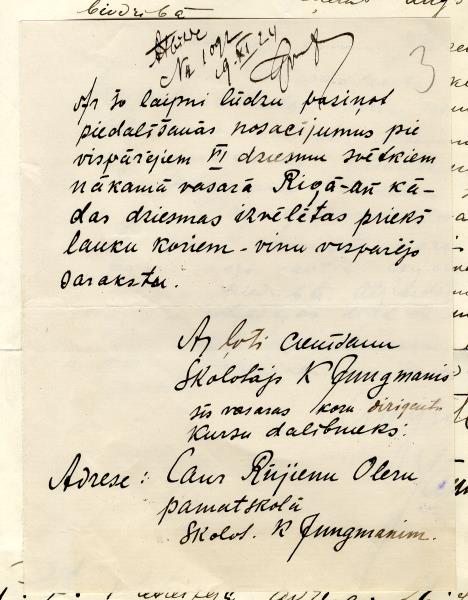 biedrībā
Atbilde
No 1092
19.XI.24
3
Ar šo laipni lūdzu paziņot
piedalīšanās nosacījumus pie
vispārējiem VI dziesmu svētkiem
nākamā vasarā Rīgā - arī kā-
das dziesmas izvēlētas priekš
lauku koriem - viņu vispārējo
sarakstu.
Ar ļoti cienīšanu
Skolotājs K Jungmanis
šīs vasaras koru dirigentu
kursu dalībnieks.
Adrese: Caur Rūjienu Oleru
pamatskolā
Skolot. K Jungmanim.